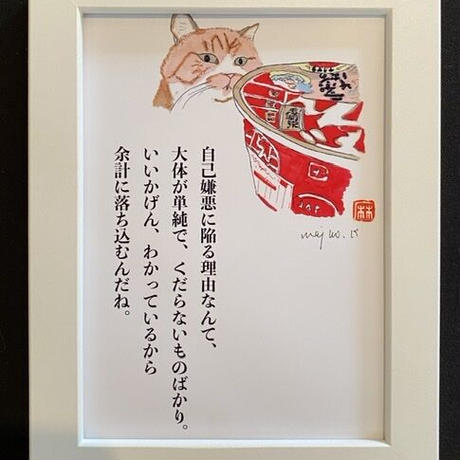 自己嫌悪に陥る理由なんて、
大体が単純で、くだらないものばかり。
いいかげん、わかっているから
余計に落ち込むんだね。